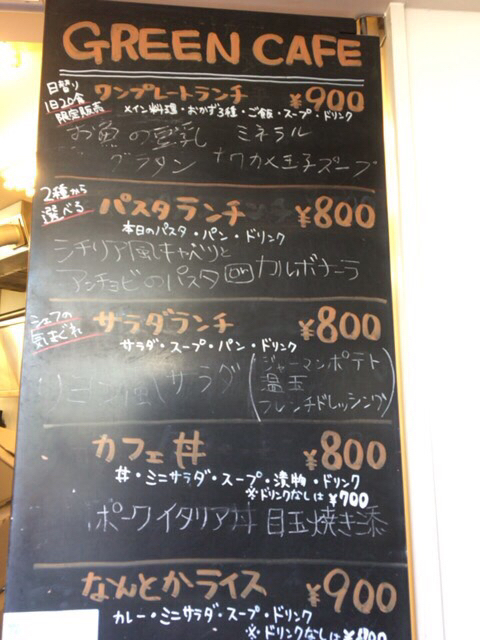 GREEN CAFE
日替り
1日20食
限定販売
ワンプレートランチ ¥900
メイン料理・おかず3種・ご飯・スープ・ドリンク
お魚の豆乳 ミネラル
グラタン ワカメ玉子スープ
2種から
選べる
パスタランチ ¥800
本日のパスタ・パン・ドリンク
シチリア風キャベツと
アンチョビのパスタ or カルボナーラ
シェフの
気まぐれ
サラダランチ ¥800
サラダ・スープ・パン・ドリンク
風サラダ
ジャーマンポテト
温玉
フレンチドレッシング
カフェ丼 ¥800
丼・ミニサラダ・スープ・漬物・ドリンク
※ドリンクなしは¥700
ポークイタリア丼 目玉焼き添
なんとかライス ¥900
カレー・ミニサラダ・スープ・ドリンク
※ドリンクなしは